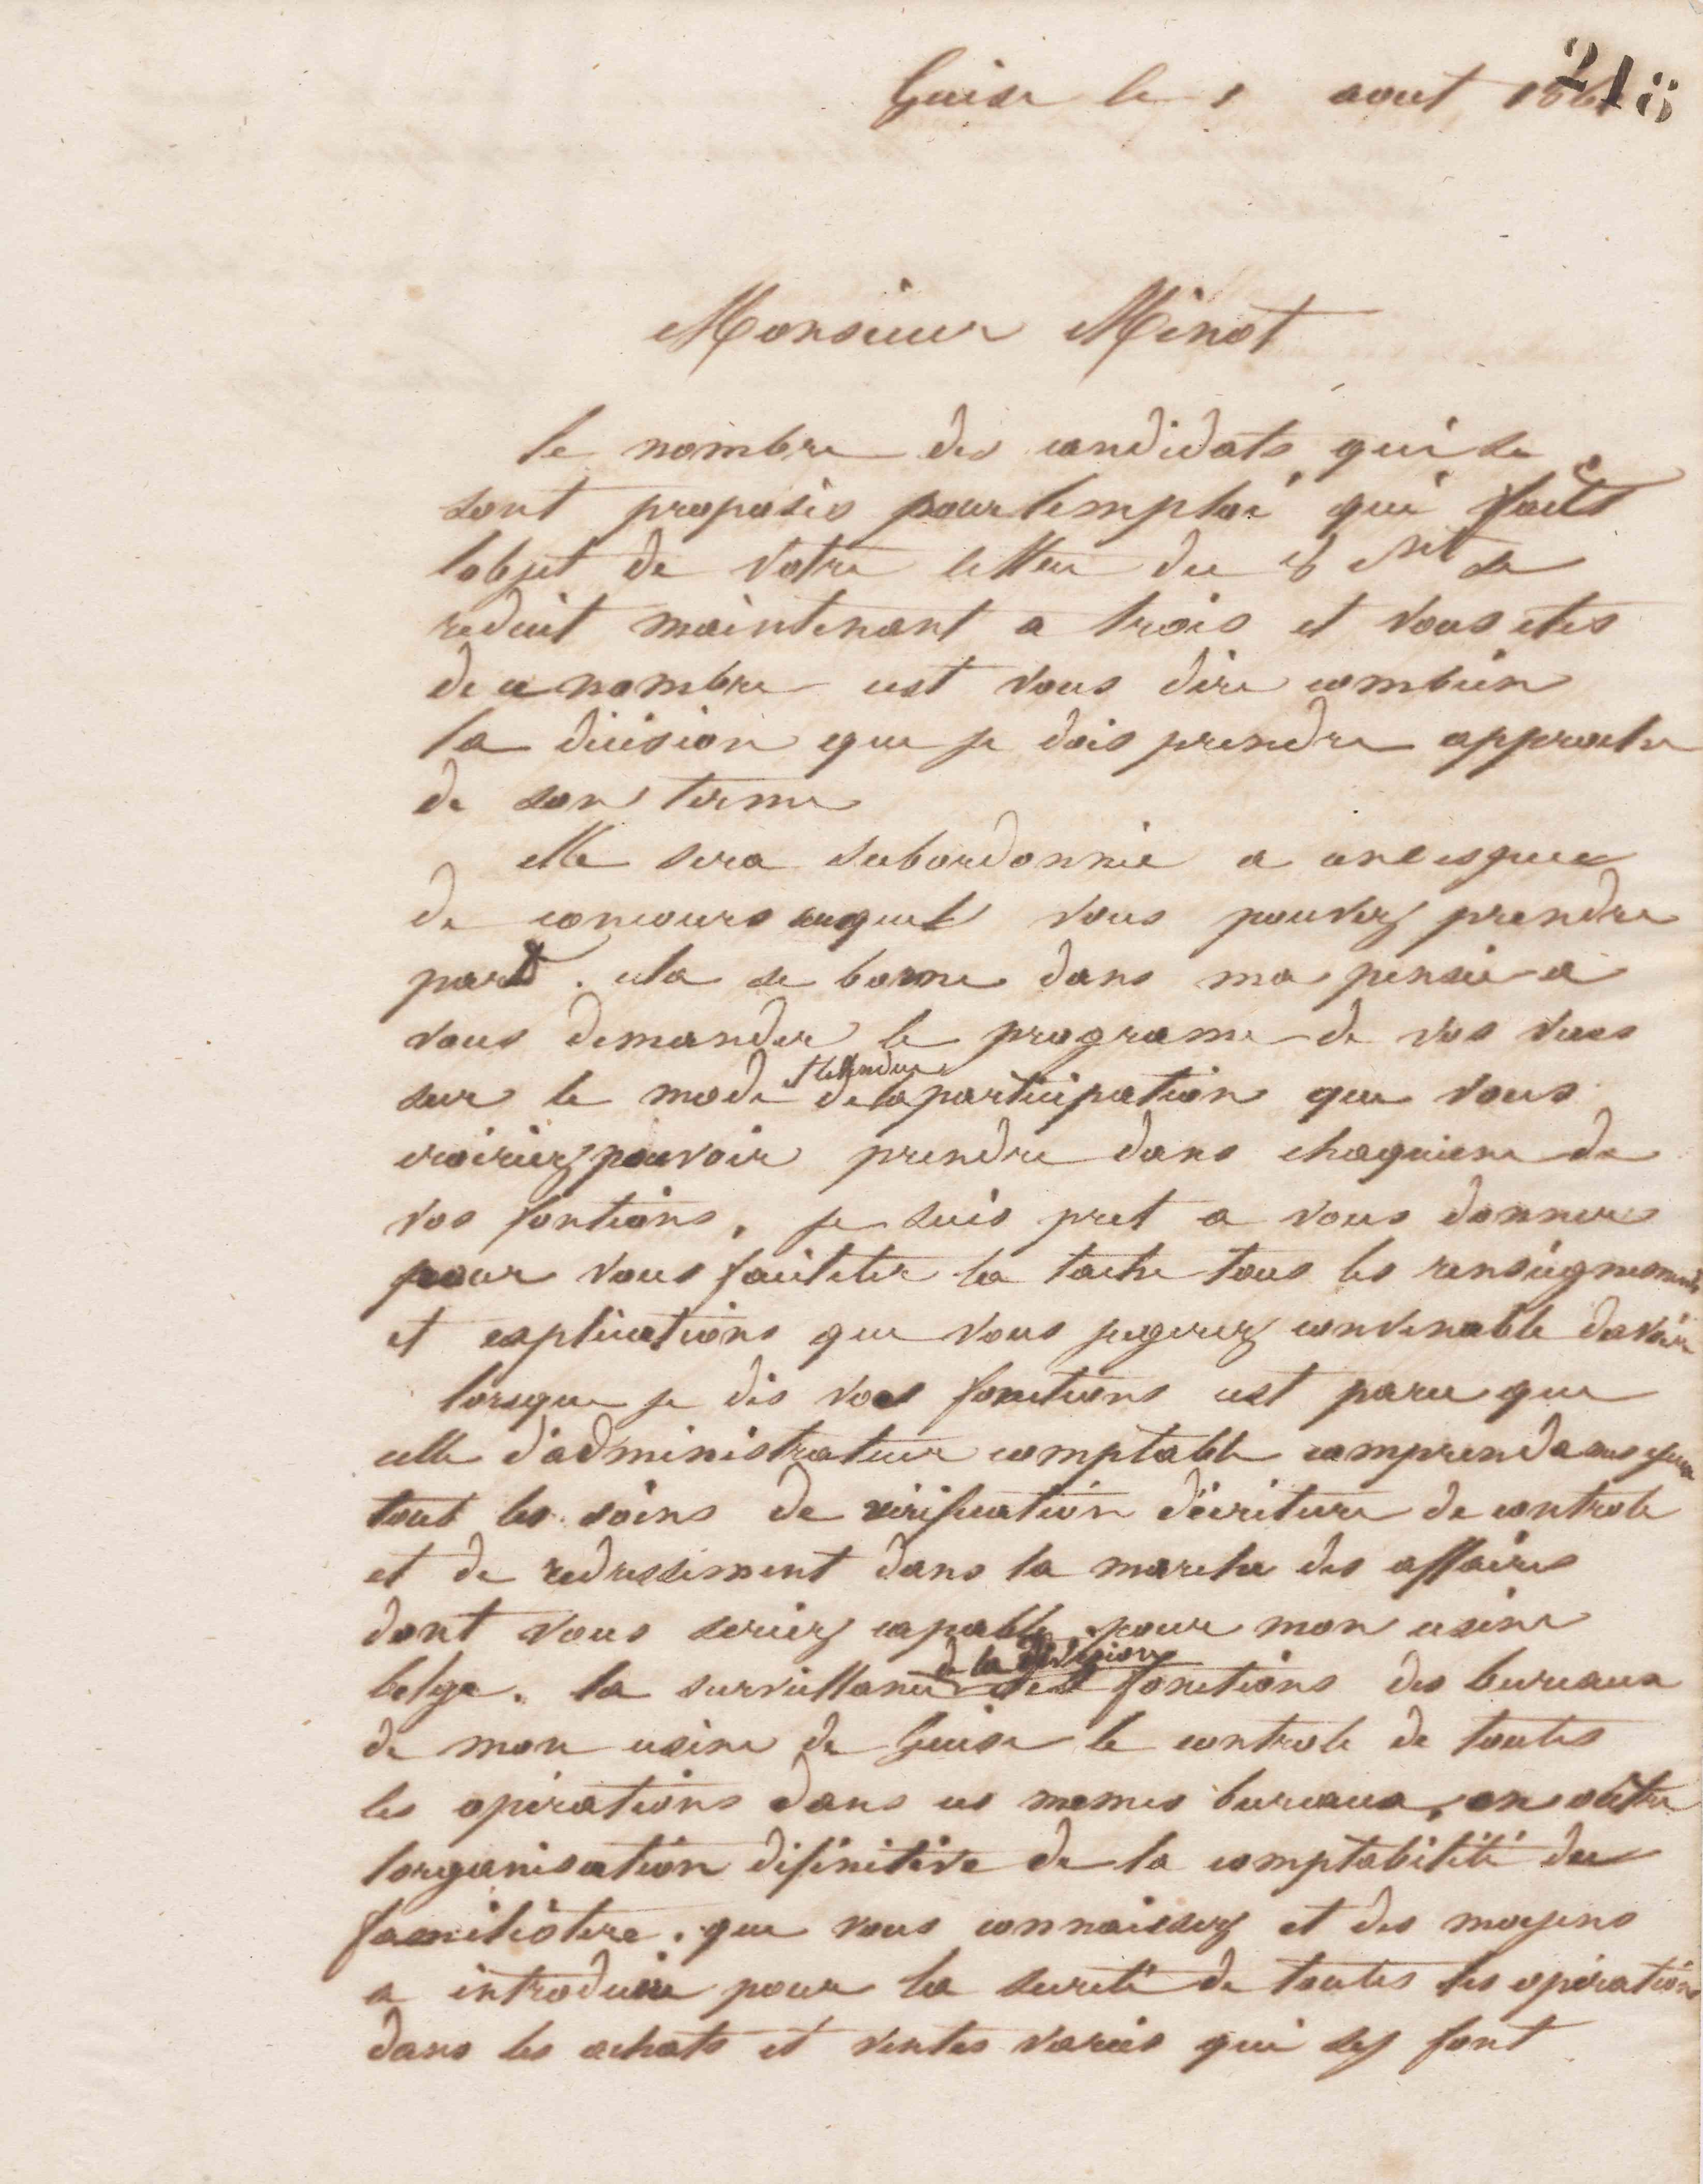 218
Guise le 1 aout 186
Monsieur Minot
le nombre des candidats qui se
sont proposés pour lemploi qui fait
lobjet de votre lettre du 8 se
reduit maintenant a trois et vous etes
de ce nombre cest vous dire combien
la décision que je dois prendre approche
de son terme
elle sera subordonnée a une espece
de concours auquel vous pouvez prendre
part. cela se borne dans ma pensée a
vous demander le programe de vos vues
et letendue
sur le mode de la participation que vous
croiriez pouvoir prendre dans chaqune de
vos fontions, je suis pret a vous donner
pour vous faciliter la tache tous les renseignements
et explications que vous jugerez convenable davoir
lorsque je dis vos fonctions cest parce que
celle d'administrateur comptable comprend
tout les soins de vérification d'écriture de controle
et de redressement dans la marche des affaires
dont vous seriez capable pour mon usine
de la division
belge. la surveillance des fonctions des bureaux
de mon usine de Guise le controle de toutes
les opérations dans ces memes bureaux, en outre
lorganisation définitive de la comptabilité du
familistère. que vous connaissez et des moyens
a introduire pour la sureté de toutes les opérations
dans les achats et ventes variés qui sy font